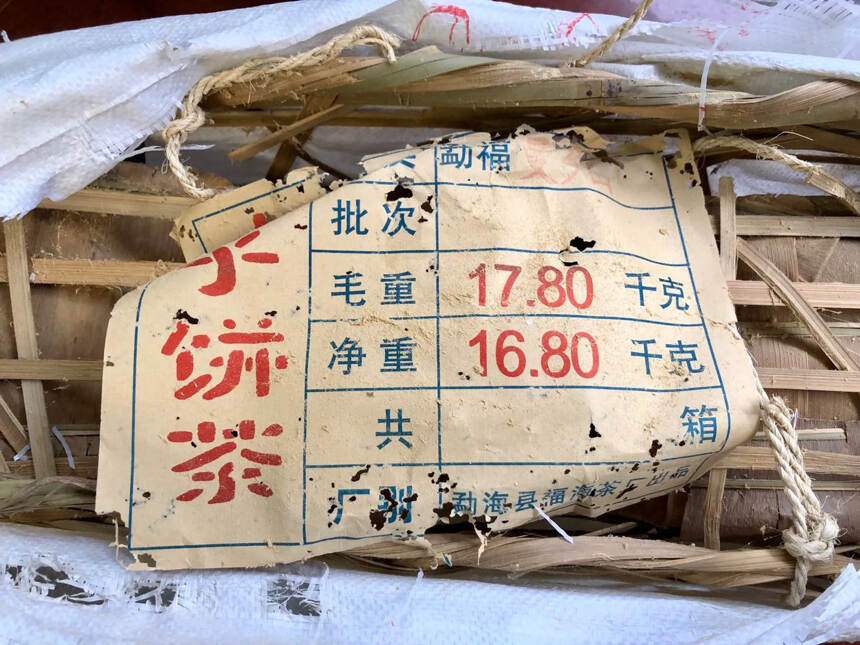 子饼茶
勐福
批次
毛重 17.80 千克
净重 16.80 千克
共 箱
厂别 勐海县福海茶厂出品